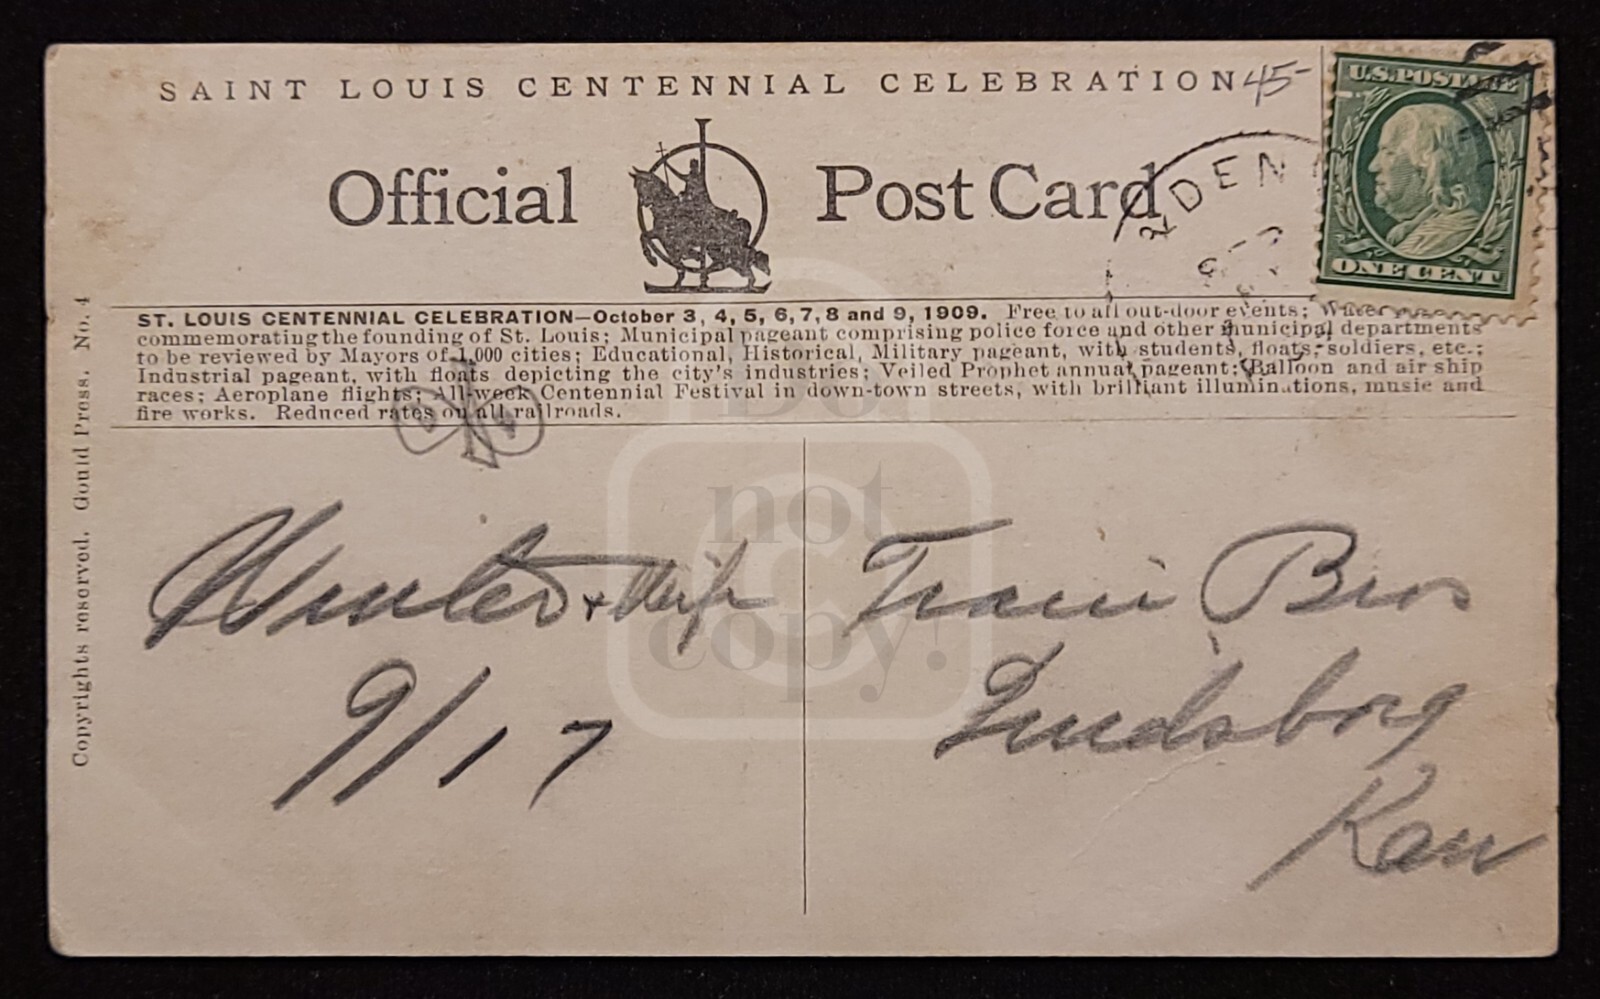 SAINT LOUIS CENTENNIAL CELEBRATION 45-
U.S. POSTAGE
ONE CENT
Official Post Card
DEN
ST. LOUIS CENTENNIAL CELEBRATION—October 3, 4, 5, 6, 7, 8 and 9, 1909. Free to all out-door events; Water
commemorating the founding of St. Louis; Municipal pageant comprising police force and other municipal departments
to be reviewed by Mayors of 1,000 cities; Educational, Historical, Military pageant, with students, floats, soldiers, etc.;
Industrial pageant, with floats depicting the city's industries; Veiled Prophet annual pageant; Balloon and air ship
races; Aeroplane flights; All-week Centennial Festival in down-town streets, with brilliant illuminations, music and
fire works. Reduced rates on all railroads.
Copyrights reserved. Gould Press. No. 4
Do
not
copy!
& Wife
9/17
Bros
Lindsborg
Kan